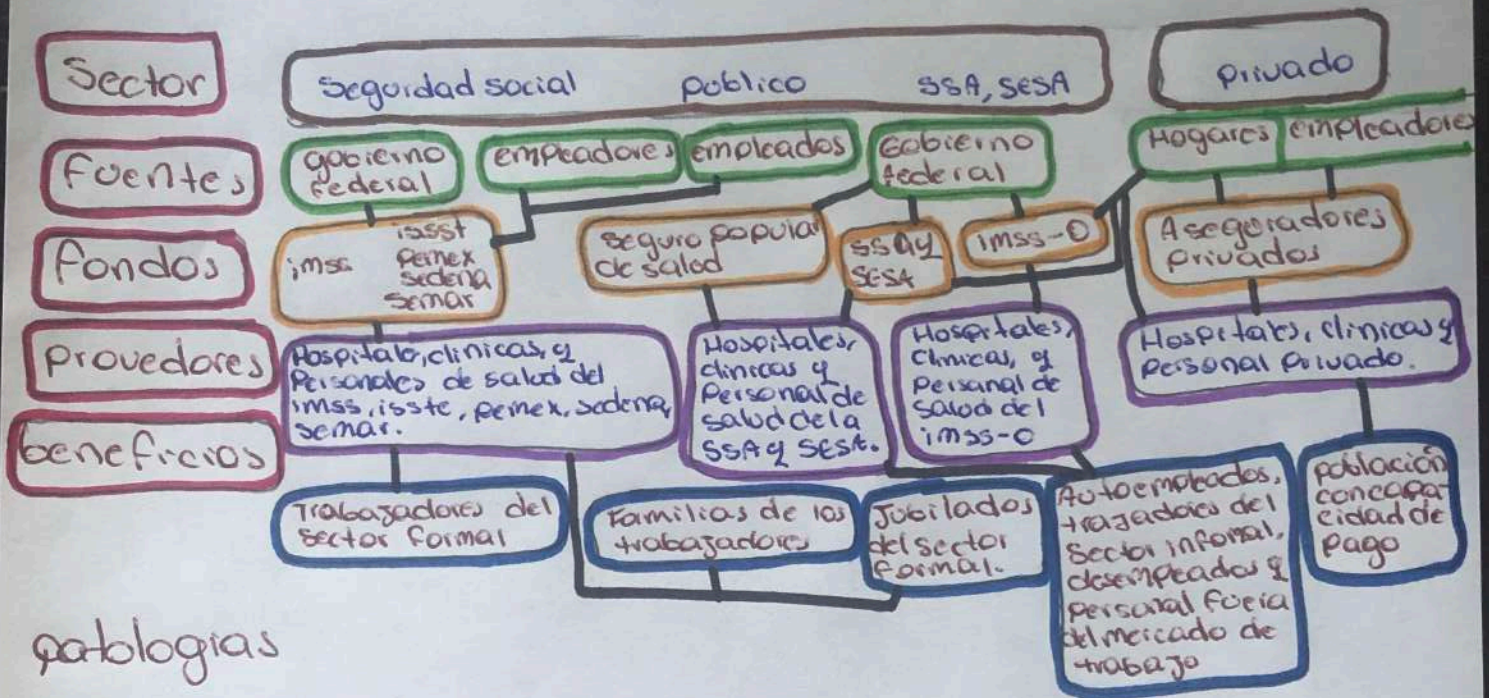 Sector
Seguridad social público SSA, SESA
privado
Fuentes
gobierno
federal
empleadores
empleados
Gobierno
federal
Hogares
empleadores
Fondos
issst
imss pemex
sedena
semar
Seguro popular
de salud
SSA y
SESA
imss-O
Aseguradores
privados
provedores
Hospitale, clinicas, y
Personales de salud del
imss, isste, pemex, sedena,
semar.
Hospitales,
clinicas y
Personal de
salud de la
SSA y SESA.
Hospitales,
Clinicas, y
Personal de
Salud del
imss-O
Hospitales, clinicas y
personal Privado.
beneficios
Trabajadores del
sector formal
Familias de los
trabajadores
Jubilados
del sector
formal.
Autoempleados,
trajadores del
sector informal,
desempleados y
personal fuera
del mercado de
trabajo
población
con capa-
cidad de
pago
patologias